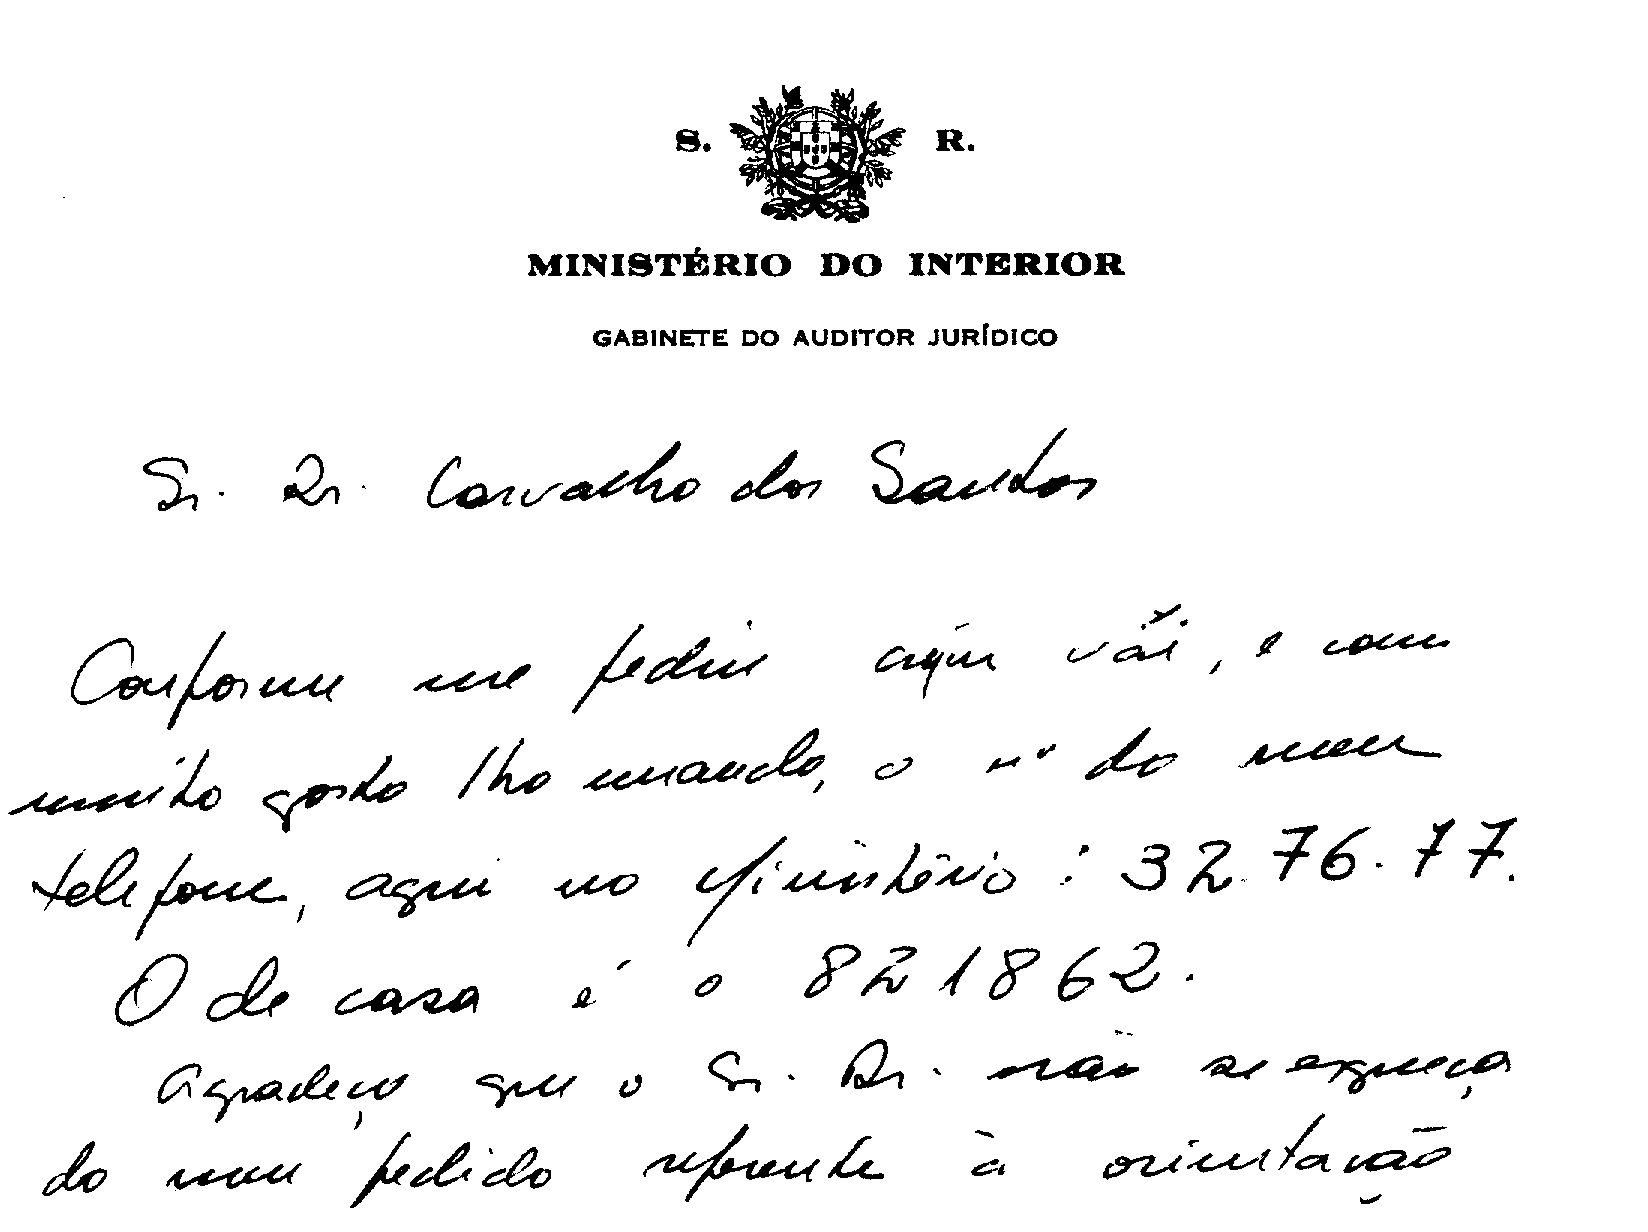 S. R.
MINISTÉRIO DO INTERIOR
GABINETE DO AUDITOR JURÍDICO
Sr. Dr. Carvalho dos Santos
Conforme me pediu aqui vai, e com
muito gosto lho mando, o nº do meu
telefone, aqui no Ministério: 32.76.77.
O de casa é o 821862.
Agradeço que o Sr. Dr. não se esqueça
do meu pedido referente à orientação